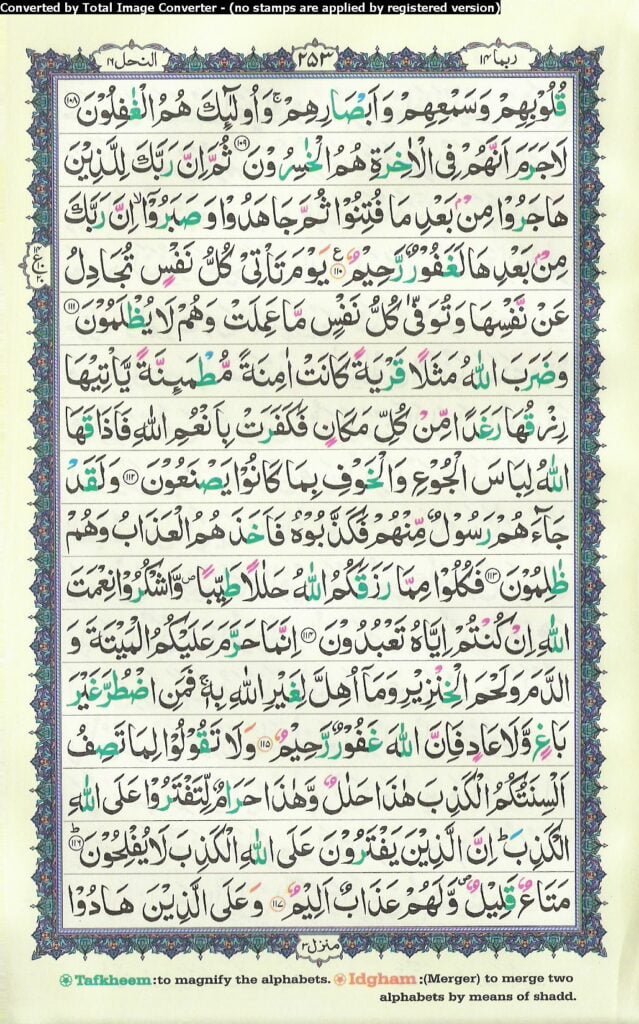 Converted by Total Image Converter - (no stamps are applied by registered version)
ربما ١٤
٢٥٣
النحل ١٦
قُلُوْبِهِمْ وَسَمْعِهِمْ وَاَبْصَارِهِمْ ۚ وَاُولٰٓئِكَ هُمُ الْغٰفِلُوْنَ ۝١٠٨
لَاجَرَمَ اَنَّهُمْ فِى الْاٰخِرَةِ هُمُ الْخٰسِرُوْنَ ۝١٠٩ ثُمَّ اِنَّ رَبَّكَ لِلَّذِيْنَ
هَاجَرُوْا مِنْۢ بَعْدِ مَا فُتِنُوْا ثُمَّ جَاهَدُوْا وَصَبَرُوْۤا ۙ اِنَّ رَبَّكَ
مِنْۢ بَعْدِهَا لَغَفُوْرٌ رَّحِيْمٌ ۝١١٠ يَوْمَ تَاْتِيْ كُلُّ نَفْسٍ تُجَادِلُ
عَنْ نَّفْسِهَا وَتُوَفّٰى كُلُّ نَفْسٍ مَّا عَمِلَتْ وَهُمْ لَا يُظْلَمُوْنَ ۝١١١
وَضَرَبَ اللّٰهُ مَثَلًا قَرْيَةً كَانَتْ اٰمِنَةً مُّطْمَىِٕنَّةً يَّاْتِيْهَا
رِزْقُهَا رَغَدًا مِّنْ كُلِّ مَكَانٍ فَكَفَرَتْ بِاَنْعُمِ اللّٰهِ فَاَذَاقَهَا
اللّٰهُ لِبَاسَ الْجُوْعِ وَالْخَوْفِ بِمَا كَانُوْا يَصْنَعُوْنَ ۝١١٢ وَلَقَدْ
جَآءَهُمْ رَسُوْلٌ مِّنْهُمْ فَكَذَّبُوْهُ فَاَخَذَهُمُ الْعَذَابُ وَهُمْ
ظٰلِمُوْنَ ۝١١٣ فَكُلُوْا مِمَّا رَزَقَكُمُ اللّٰهُ حَلٰلًا طَيِّبًا ۖ وَّاشْكُرُوْا نِعْمَتَ
اللّٰهِ اِنْ كُنْتُمْ اِيَّاهُ تَعْبُدُوْنَ ۝١١٤ اِنَّمَا حَرَّمَ عَلَيْكُمُ الْمَيْتَةَ وَ
الدَّمَ وَلَحْمَ الْخِنْزِيْرِ وَمَاۤ اُهِلَّ لِغَيْرِ اللّٰهِ بِهٖ ۚ فَمَنِ اضْطُرَّ غَيْرَ
بَاغٍ وَّلَا عَادٍ فَاِنَّ اللّٰهَ غَفُوْرٌ رَّحِيْمٌ ۝١١٥ وَلَا تَقُوْلُوْا لِمَا تَصِفُ
اَلْسِنَتُكُمُ الْكَذِبَ هٰذَا حَلٰلٌ وَّهٰذَا حَرَامٌ لِّتَفْتَرُوْا عَلَى اللّٰهِ
الْكَذِبَ ۭ اِنَّ الَّذِيْنَ يَفْتَرُوْنَ عَلَى اللّٰهِ الْكَذِبَ لَا يُفْلِحُوْنَ ۝١١٦
مَتَاعٌ قَلِيْلٌ ۖ وَّلَهُمْ عَذَابٌ اَلِيْمٌ ۝١١٧ وَعَلَى الَّذِيْنَ هَادُوْا
منزل ٣
Tafkheem:to magnify the alphabets. Idgham:(Merger) to merge two
alphabets by means of shadd.